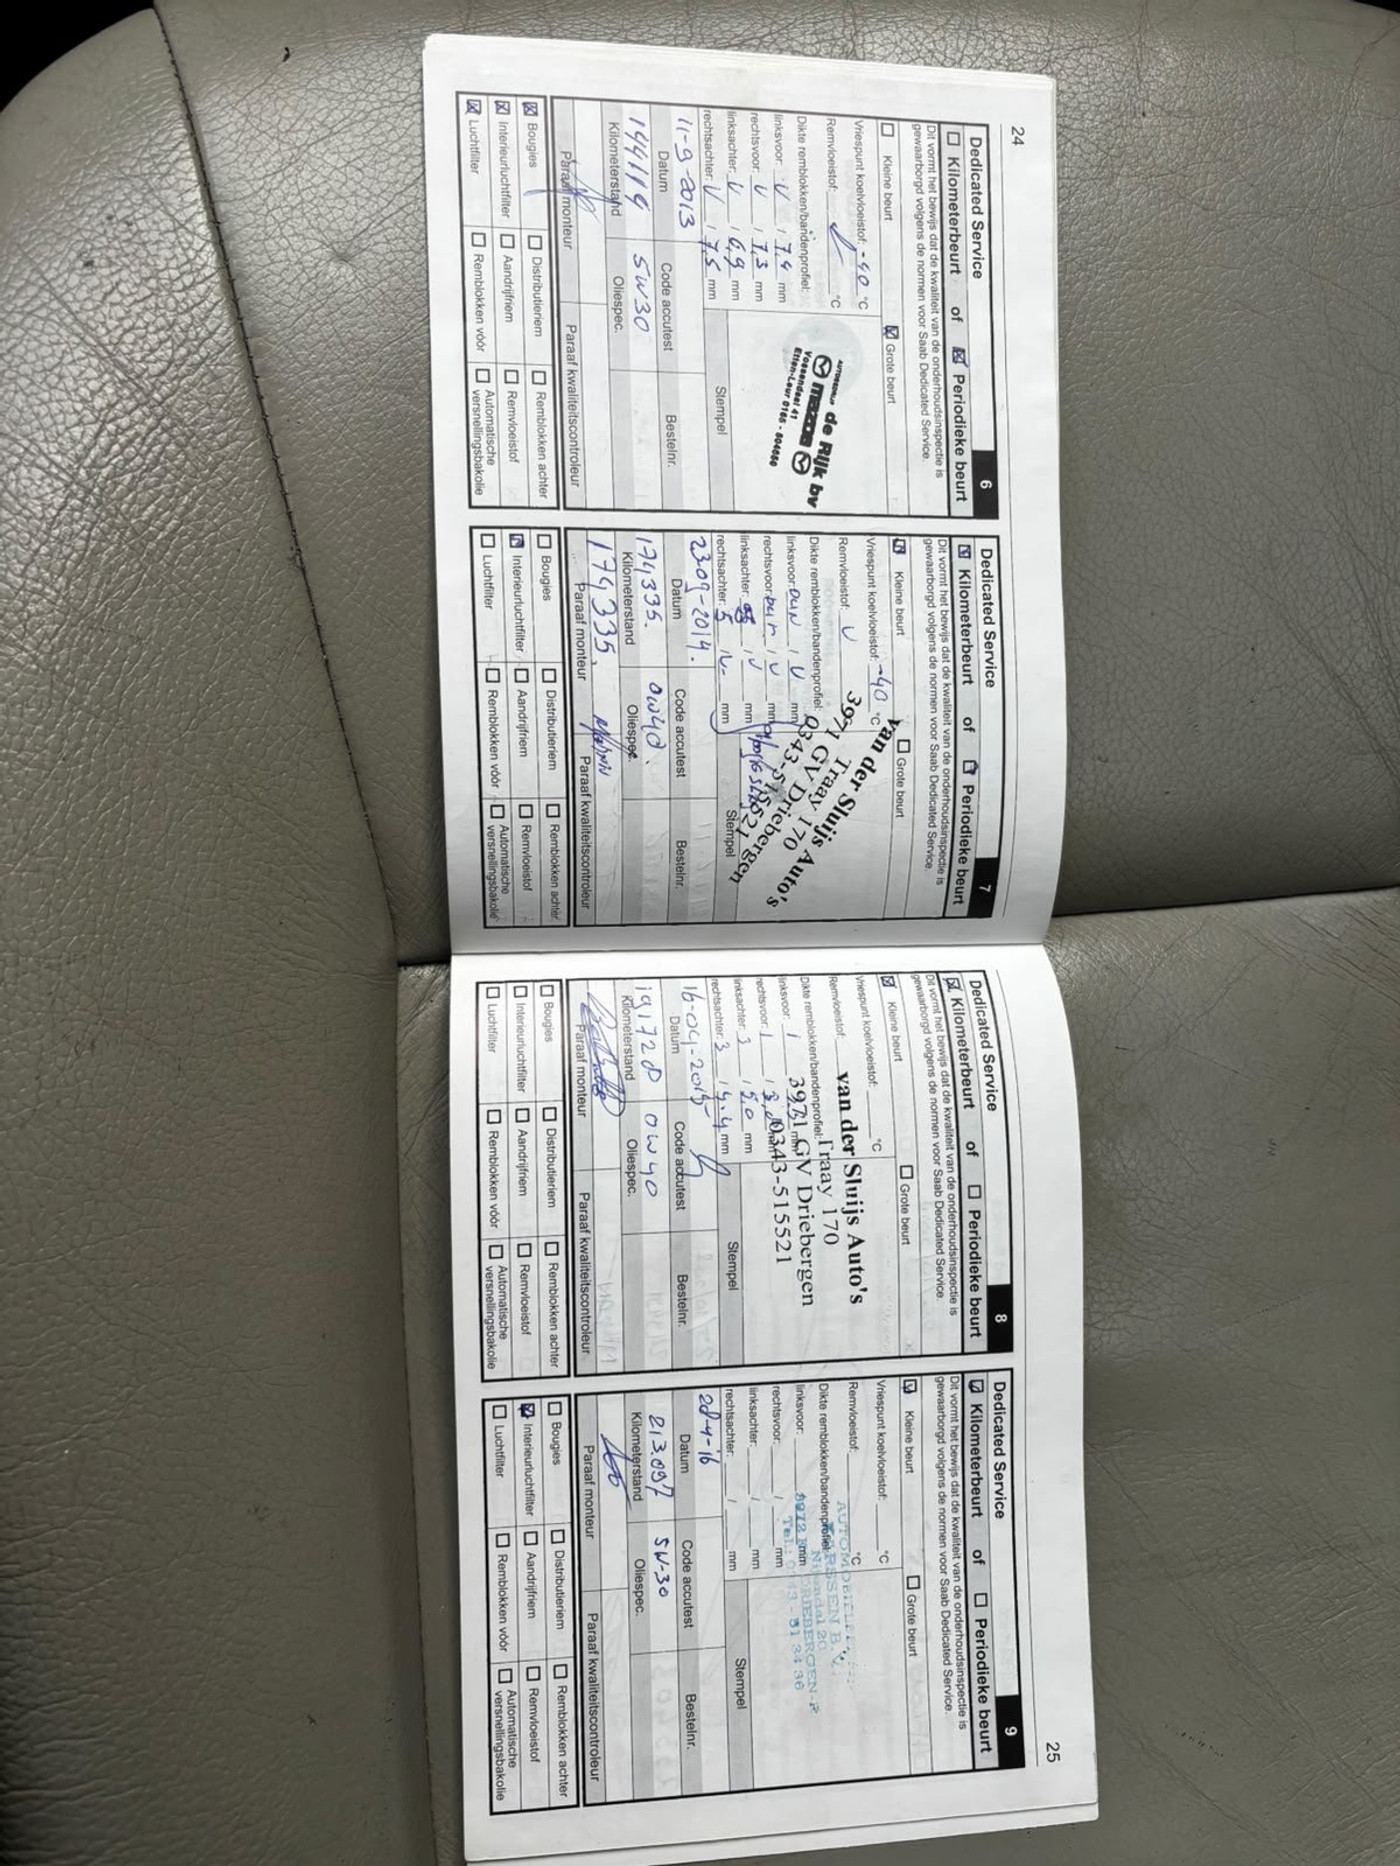 24
Dedicated Service 6
☐ Kilometerbeurt of ☒ Periodieke beurt
Dit vormt het bewijs dat de kwaliteit van de onderhoudsinspectie is
gewaarborgd volgens de normen voor Saab Dedicated Service.
☐ Kleine beurt ☒ Grote beurt
Vriespunt koelvloeistof: -40 °C
Remvloeistof: °C
Dikte remblokken/bandenprofiel:
linksvoor: V / 7,4 mm
rechtsvoor: V / 7,3 mm
linksachter: V / 6,9 mm
rechtsachter: V / 7,5 mm
AUTOBEDRIJF de Rijk bv
mazda
Vossendaal 41
Etten-Leur 0165 - 604650
Stempel
11-9-2013
Datum Code accutest Bestelnr.
144119 5W30
Kilometerstand Oliespec.
Paraaf monteur Paraaf kwaliteitscontroleur
☒ Bougies ☐ Distributieriem ☐ Remblokken achter
☒ Interieurluchtfilter ☐ Aandrijfriem ☐ Remvloeistof
☒ Luchtfilter ☐ Remblokken vóór ☐ Automatische
versnellingsbakolie
Dedicated Service 7
☒ Kilometerbeurt of ☐ Periodieke beurt
Dit vormt het bewijs dat de kwaliteit van de onderhoudsinspectie is
gewaarborgd volgens de normen voor Saab Dedicated Service.
☒ Kleine beurt ☐ Grote beurt
Vriespunt koelvloeistof: -40 °C
Remvloeistof: V
Dikte remblokken/bandenprofiel:
linksvoor: / V mm
rechtsvoor: / V mm
linksachter: / V mm
rechtsachter: 5 / V mm
van der Sluijs Auto's
Traay 170
3971 GV Driebergen
0343-515521
Stempel
23-09-2014.
Datum Code accutest Bestelnr.
174,335. 0W40.
Kilometerstand Oliespec.
174,335,
Paraaf monteur Paraaf kwaliteitscontroleur
☐ Bougies ☐ Distributieriem ☐ Remblokken achter
☒ Interieurluchtfilter ☐ Aandrijfriem ☐ Remvloeistof
☐ Luchtfilter ☐ Remblokken vóór ☐ Automatische
versnellingsbakolie
Dedicated Service 8
☒ Kilometerbeurt of ☐ Periodieke beurt
Dit vormt het bewijs dat de kwaliteit van de onderhoudsinspectie is
gewaarborgd volgens de normen voor Saab Dedicated Service.
☒ Kleine beurt ☐ Grote beurt
Vriespunt koelvloeistof: °C
Remvloeistof:
Dikte remblokken/bandenprofiel:
linksvoor: 1 / mm
rechtsvoor: 1 / mm
linksachter: 3 / 5.0 mm
rechtsachter: 3 / 4.4 mm
van der Sluijs Auto's
Traay 170
3971 GV Driebergen
0343-515521
Stempel
16-04-2015
Datum Code accutest Bestelnr.
191720 0W40
Kilometerstand Oliespec.
Paraaf monteur Paraaf kwaliteitscontroleur
☐ Bougies ☐ Distributieriem ☐ Remblokken achter
☐ Interieurluchtfilter ☐ Aandrijfriem ☐ Remvloeistof
☐ Luchtfilter ☐ Remblokken vóór ☐ Automatische
versnellingsbakolie
25
Dedicated Service 9
☒ Kilometerbeurt of ☐ Periodieke beurt
Dit vormt het bewijs dat de kwaliteit van de onderhoudsinspectie is
gewaarborgd volgens de normen voor Saab Dedicated Service.
☒ Kleine beurt ☐ Grote beurt
Vriespunt koelvloeistof: °C
Remvloeistof: °C
Dikte remblokken/bandenprofiel:
linksvoor: / mm
rechtsvoor: / mm
linksachter: / mm
rechtsachter: / mm
B.V.
20
3972 DRIEBERGEN-R
Tel.: 0343 - 51 34 36
Stempel
20-4-16
Datum Code accutest Bestelnr.
213.097 5W-30
Kilometerstand Oliespec.
Paraaf monteur Paraaf kwaliteitscontroleur
☐ Bougies ☐ Distributieriem ☐ Remblokken achter
☒ Interieurluchtfilter ☐ Aandrijfriem ☐ Remvloeistof
☐ Luchtfilter ☐ Remblokken vóór ☐ Automatische
versnellingsbakolie